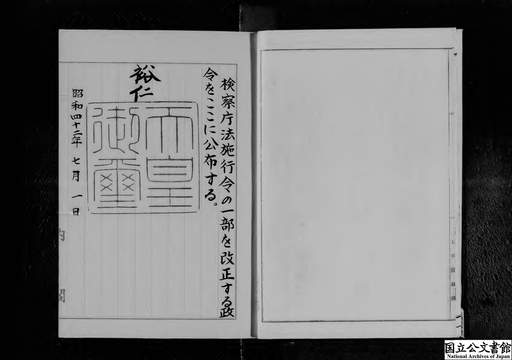 検察庁法施行令の一部を改正する政
令をここに公布する。
裕仁
天皇
御璽
昭和四十二年 七月 一日
内閣
国立公文書館
National Archives of Japan